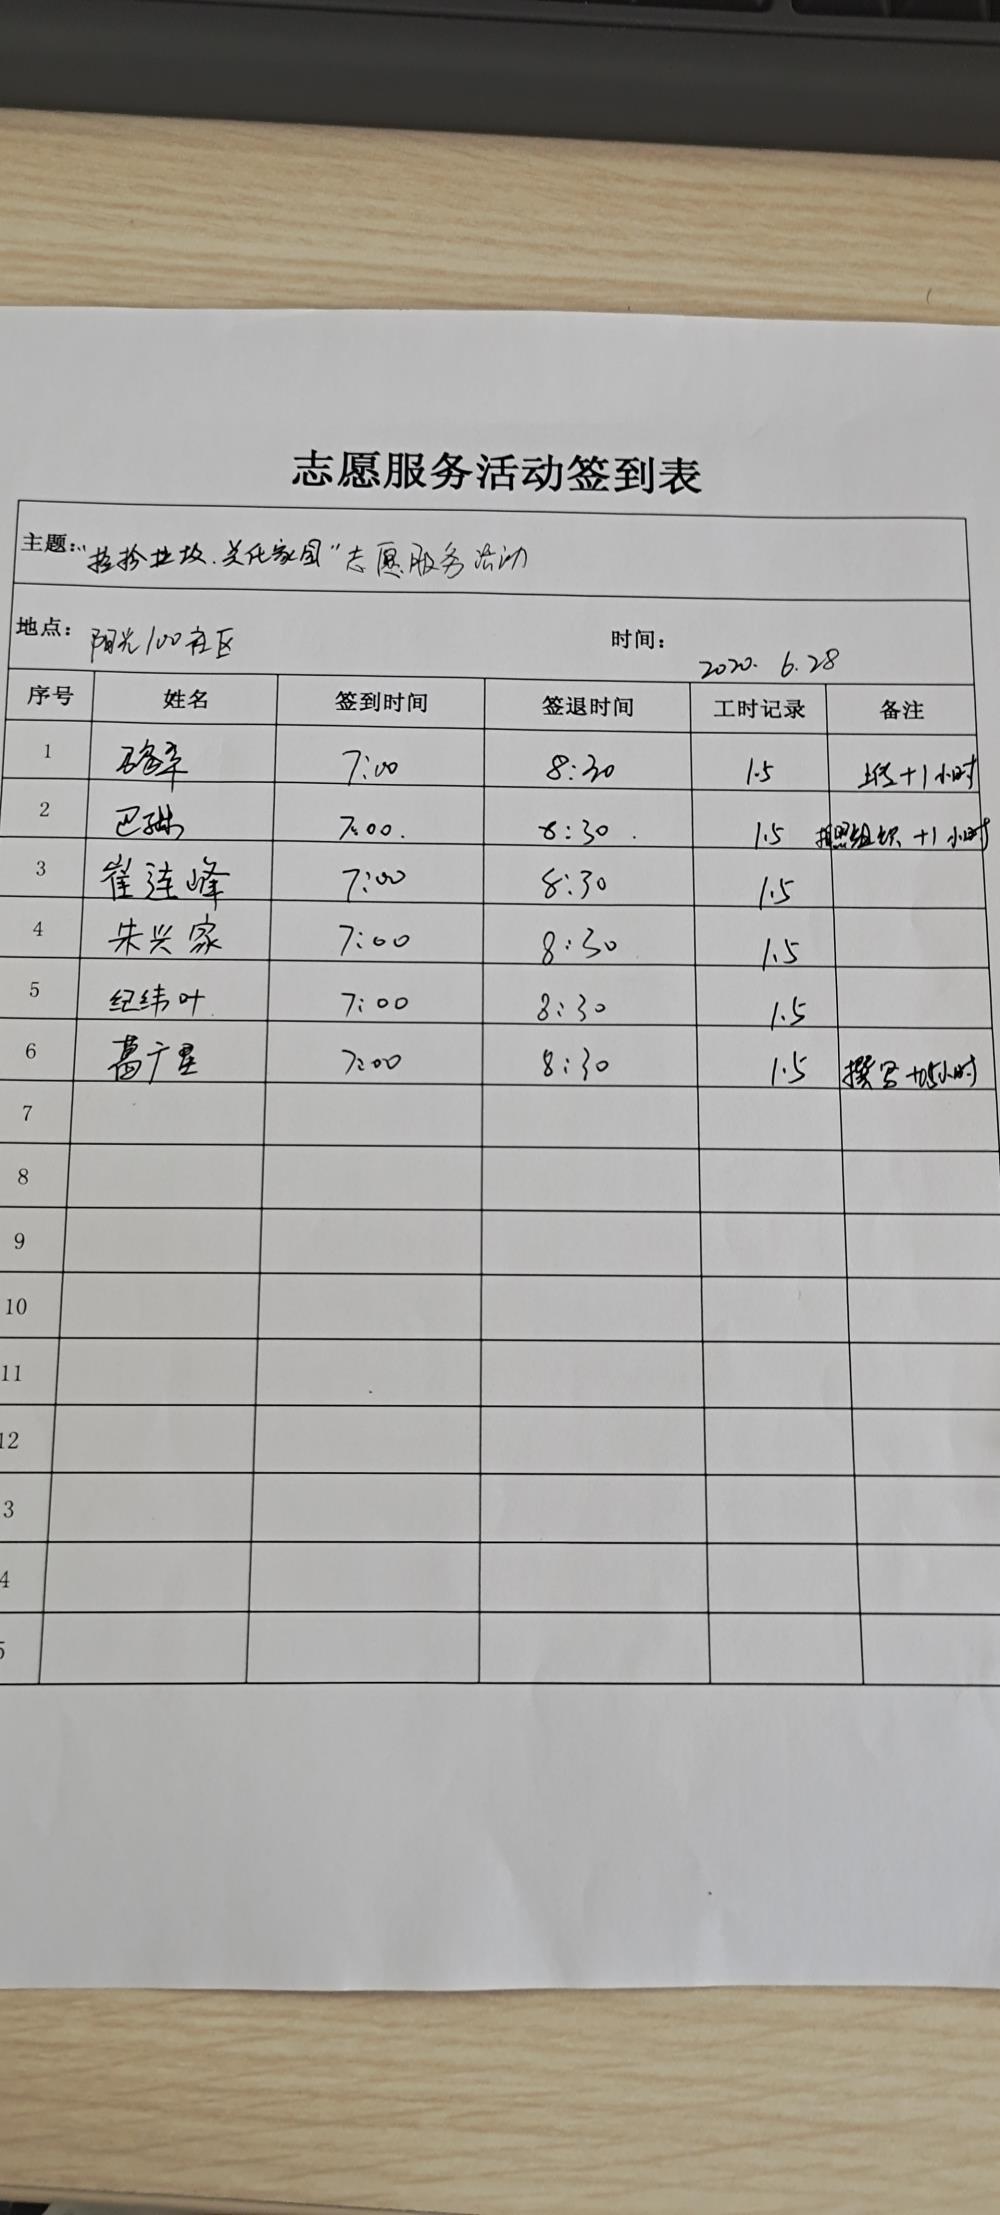 志愿服务活动签到表
主题:"捡拾垃圾.美化家园"志愿服务活动
地点: 阳光100社区 时间: 2020. 6.28
序号 姓名 签到时间 签退时间 工时记录 备注
1 7:00 8:30 1.5 上传+1小时
2 巴琳 7:00. 8:30. 1.5 拍照组织 +1小时
3 崔连峰 7:00 8:30 1.5
4 朱兴家 7:00 8:30 1.5
5 纪纬叶 7:00 8:30 1.5
6 葛广星 7:00 8:30 1.5 撰写+0.5小时
7
8
9
10
11
12
3
4
5